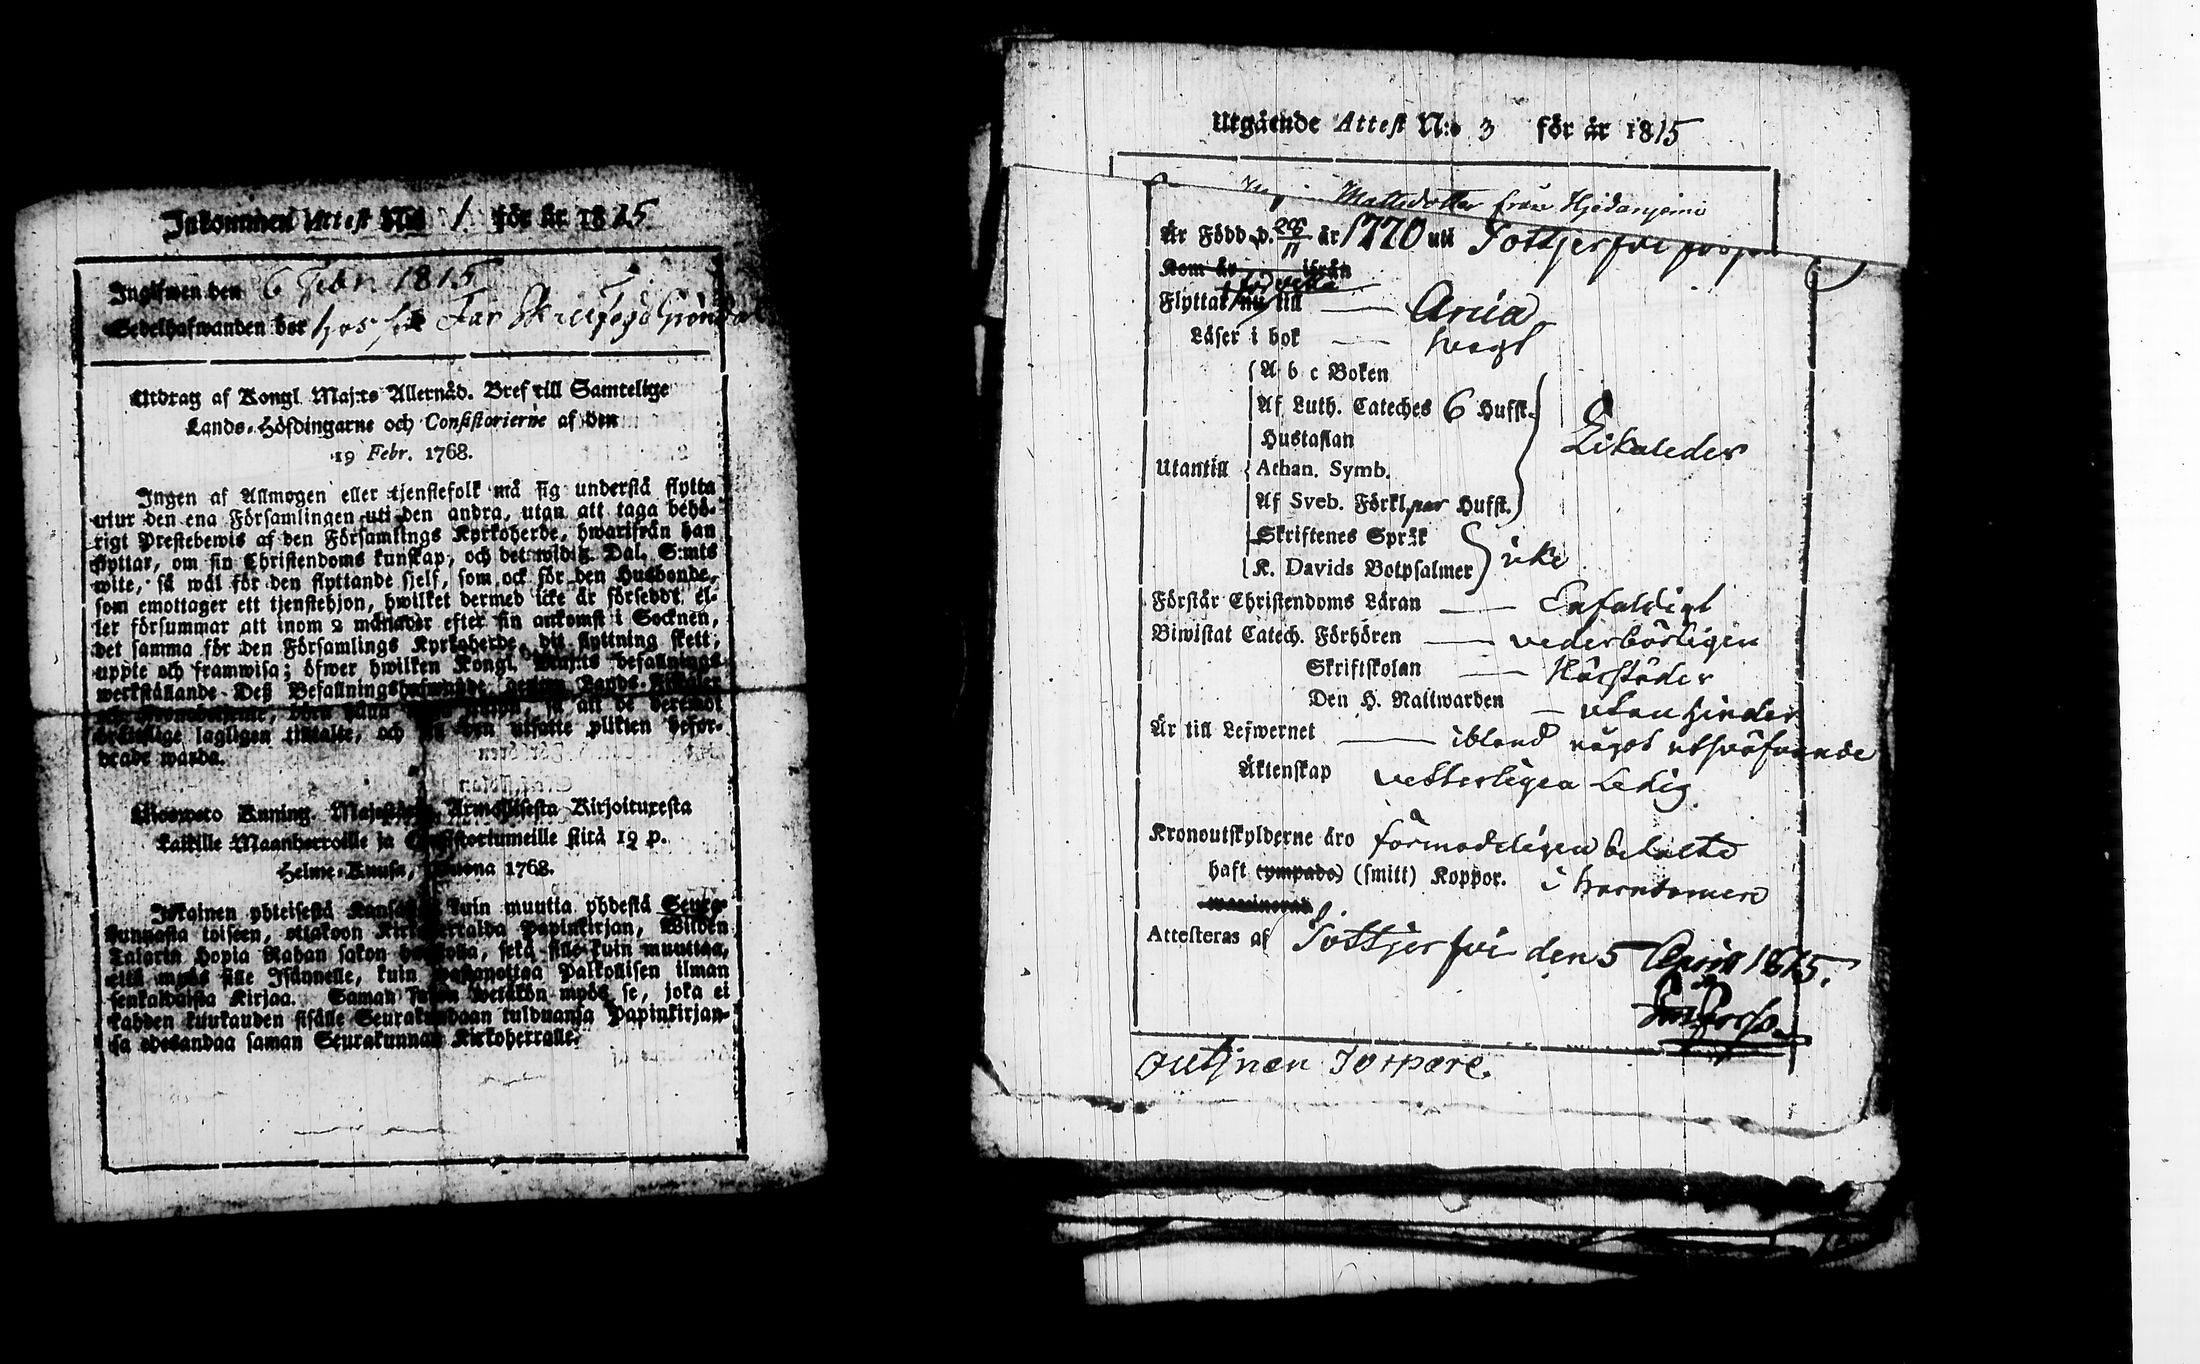 Inkommen Attest N:o 1 för år 1815
Ingifwen den 6 Febr. 1815
Sedelhafwanden bor hos
Utdrag af Kongl. Maj:ts Allernåd. Bref till Samtelige
Lands-Höfdingarne och Consistorierne af den
19 Febr. 1768.
Ingen af Allmogen eller tjenstefolk må sig understå flytta
utur den ena Församlingen uti den andra, utan att taga behö-
rigt Prestebewis af den Församlings Kyrkoherde, hwarifrån han
flyttar, om sin Christendoms kunskap, och det widt Dal. S:mts
wite, så wäl för den flyttande sjelf, som ock för den Husbonde,
som emottager ett tjenstehjon, hwilket dermed icke är förseddt el-
ler försummar att inom 2 månader efter sin ankomst i Socknen,
det samma för den Församlings Kyrkoherde, dit flyttning skett,
uppte och framwisa; öfwer hwilken Kongl. Maj:ts befallnings
werkställande Deß Befallningshafwande, genom Lands-Fiskaler
och Kronobetjente, böra hålla hand, så att de deremot
brättslige lagligen tilltalte, och till den utsatte plikten befor-
drade warda.
Ulosweto Kuning. Majestetin Armollisesta Kirjoituxesta
kaikille Maanherroille ja Consistoriumeille siitä 19 p.
Helme-Kuusa, wuona 1768.
Jokainen yhteisestä Kansasta kuin muutta yhdestä Seura-
kunnasta toiseen, ottakoon Kirkoherralda Papinkirjan, Wiiden
Talarin Hopia Rahan sakon haastolla, sekä sille kuin muuttaa,
että myös sille Isännelle, kuin wastanottaa Palkollisen ilman
senkaldaista Kirjaa. Saman sakon wetäkön myös se, joka ei
kahden kuukauden sisälle Seurakundaan tulduansa Papinkirjan-
sa edesandaa saman Seurakunnan Kirkoherralle.
Utgående Attest N:o 3 för år 1815
Mattsdotter från
Är Född d. 28/11 år 1770 uti Sottjerfvi
Kom år ifrån
Flyttar nu till Ania
Läser i bok svagt
A b c Boken
Af Luth. Cateches 6 Hufst.
Hustaflan
Utantill Athan. Symb. Likaledes
Af Sveb. Förkl. par Hufst.
Skriftenes Språk
K. Davids Botpsalmer icke
Förstår Christendoms Läran Enfaldigt
Biwistat Catech. Förhören vederbörligen
Skriftskolan Härstädes
Den H. Nattwarden utan hinder
Är till Lefwernet ibland något utsväfvande
Äktenskap vetterligen Ledig
Kronoutskylderne äro förmodeligen betalte
haft (ympade) (smitt) Koppor. i barndomen
Attesteras af Sottjerfvi den 5 April 1815.